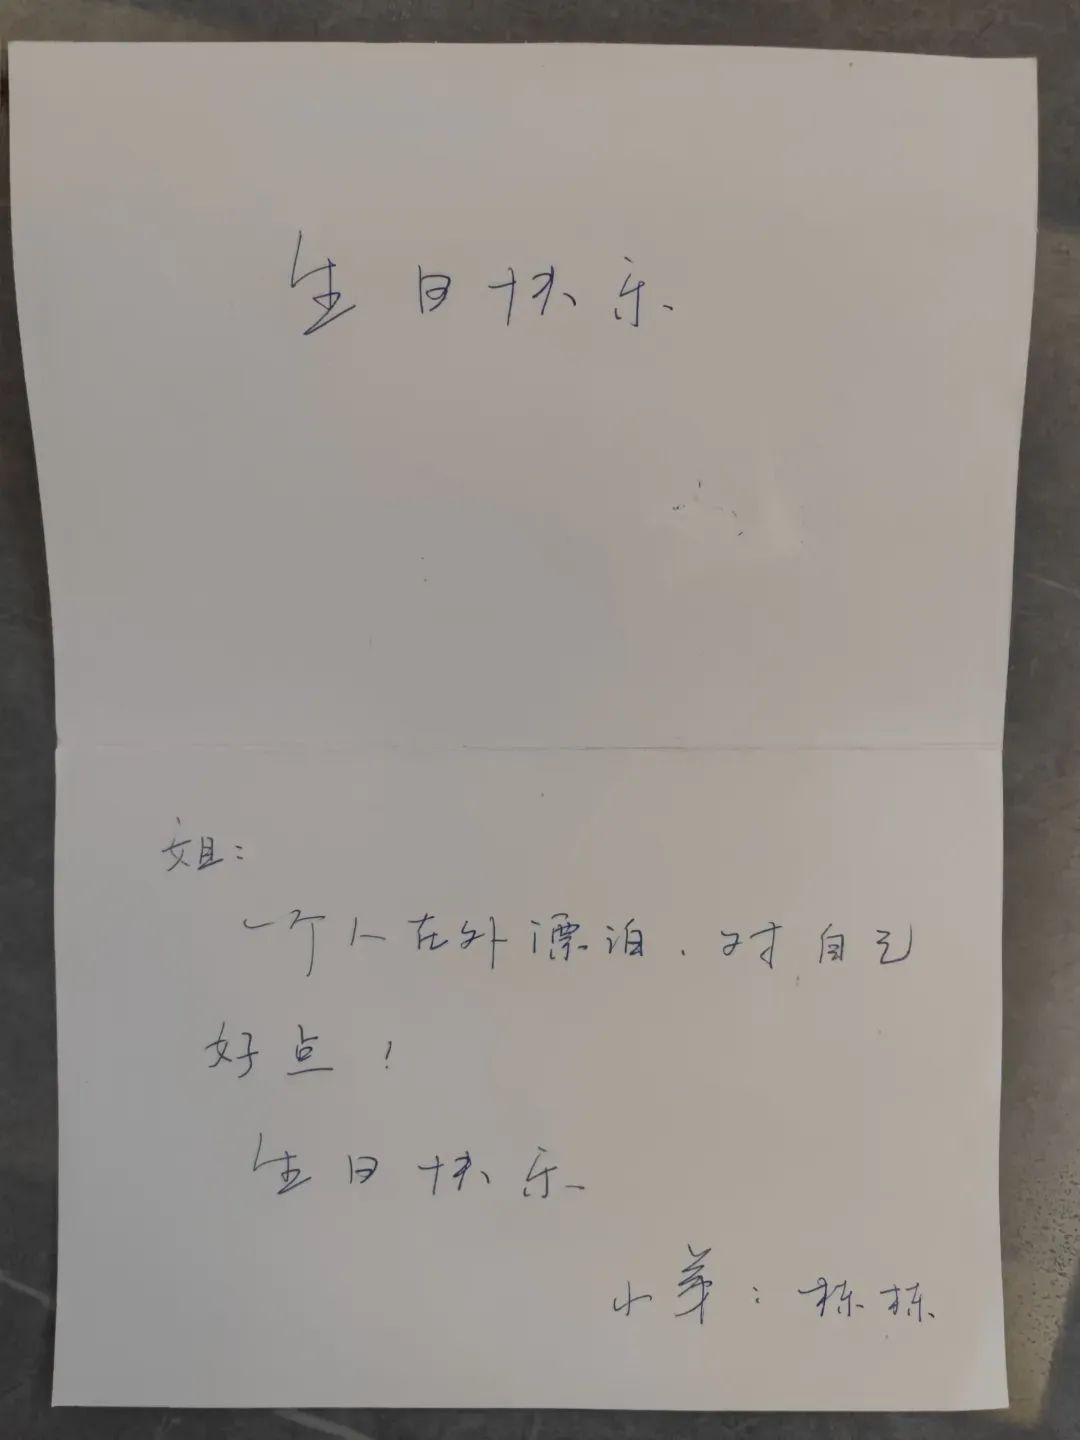 生日快乐
姐：
一个人在外漂泊、对自己
好点！
生日快乐
小弟：栋栋